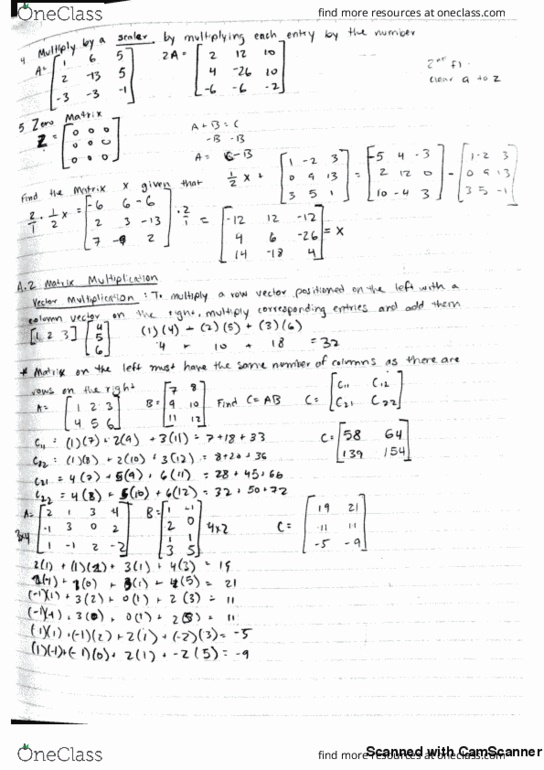 OneClass
find more resources at oneclass.com
4 Multiply by a scaler by multiplying each entry by the number
A= [1 6 5
2 -13 5
-3 -3 -1]
2A = [2 12 10
4 -26 10
-6 -6 -2]
5 Zero Matrix
Z = [0 0 0
0 0 0
0 0 0]
A + B = C
-B -B
A = C-B
Find the Matrix x given that
1/2 x + [1 -2 3
0 9 13
3 5 1] = [-5 4 -3
2 12 0
10 -4 3] - [1 -2 3
0 9 13
3 5 -1]
2/1 · 1/2 x = [-6 6 -6
2 3 -13
7 -9 2] · 2/1 = [-12 12 -12
4 6 -26
14 -18 4] = x
A.2 Matrix Multiplication
Vector Multiplication: To multiply a row vector positioned on the left with a
column vector on the right, multiply corresponding entries and add them
[1 2 3] [4
5
6]
(1)(4) + (2)(5) + (3)(6)
4 + 10 + 18 = 32
* Matrix on the left must have the same number of columns as there are
rows on the right
A= [1 2 3
4 5 6]
B= [7 8
9 10
11 12]
Find C=AB
C= [C11 C12
C21 C22]
C11 = (1)(7) + 2(9) + 3(11) = 7+18+33
C22 = (1)(8) + 2(10) + 3(12) = 8+20+36
C21 = 4(7) + 5(9) + 6(11) = 28+45+66
C22 = 4(8) + 5(10) + 6(12) = 32+50+72
C= [58 64
139 154]
A= [2 1 3 4
-1 3 0 2
1 -1 2 -2]
3x4
B= [1 -1
2 0
1 1
3 5] 4x2
C= [19 21
11 11
-5 -9]
2(1) + (1)(2) + 3(1) + 4(3) = 19
+ 4(5) = 21
(-1)(1) + 3(2) + 0(1) + 2(3) = 11
(-1)(-1) + 3(0) + 0(1) + 2(5) = 11
(1)(1) + (-1)(2) + 2(1) + (-2)(3) = -5
(1)(-1) + (-1)(0) + 2(1) + -2(5) = -9
OneClass
find more resources at oneclass.com
Scanned with CamScanner